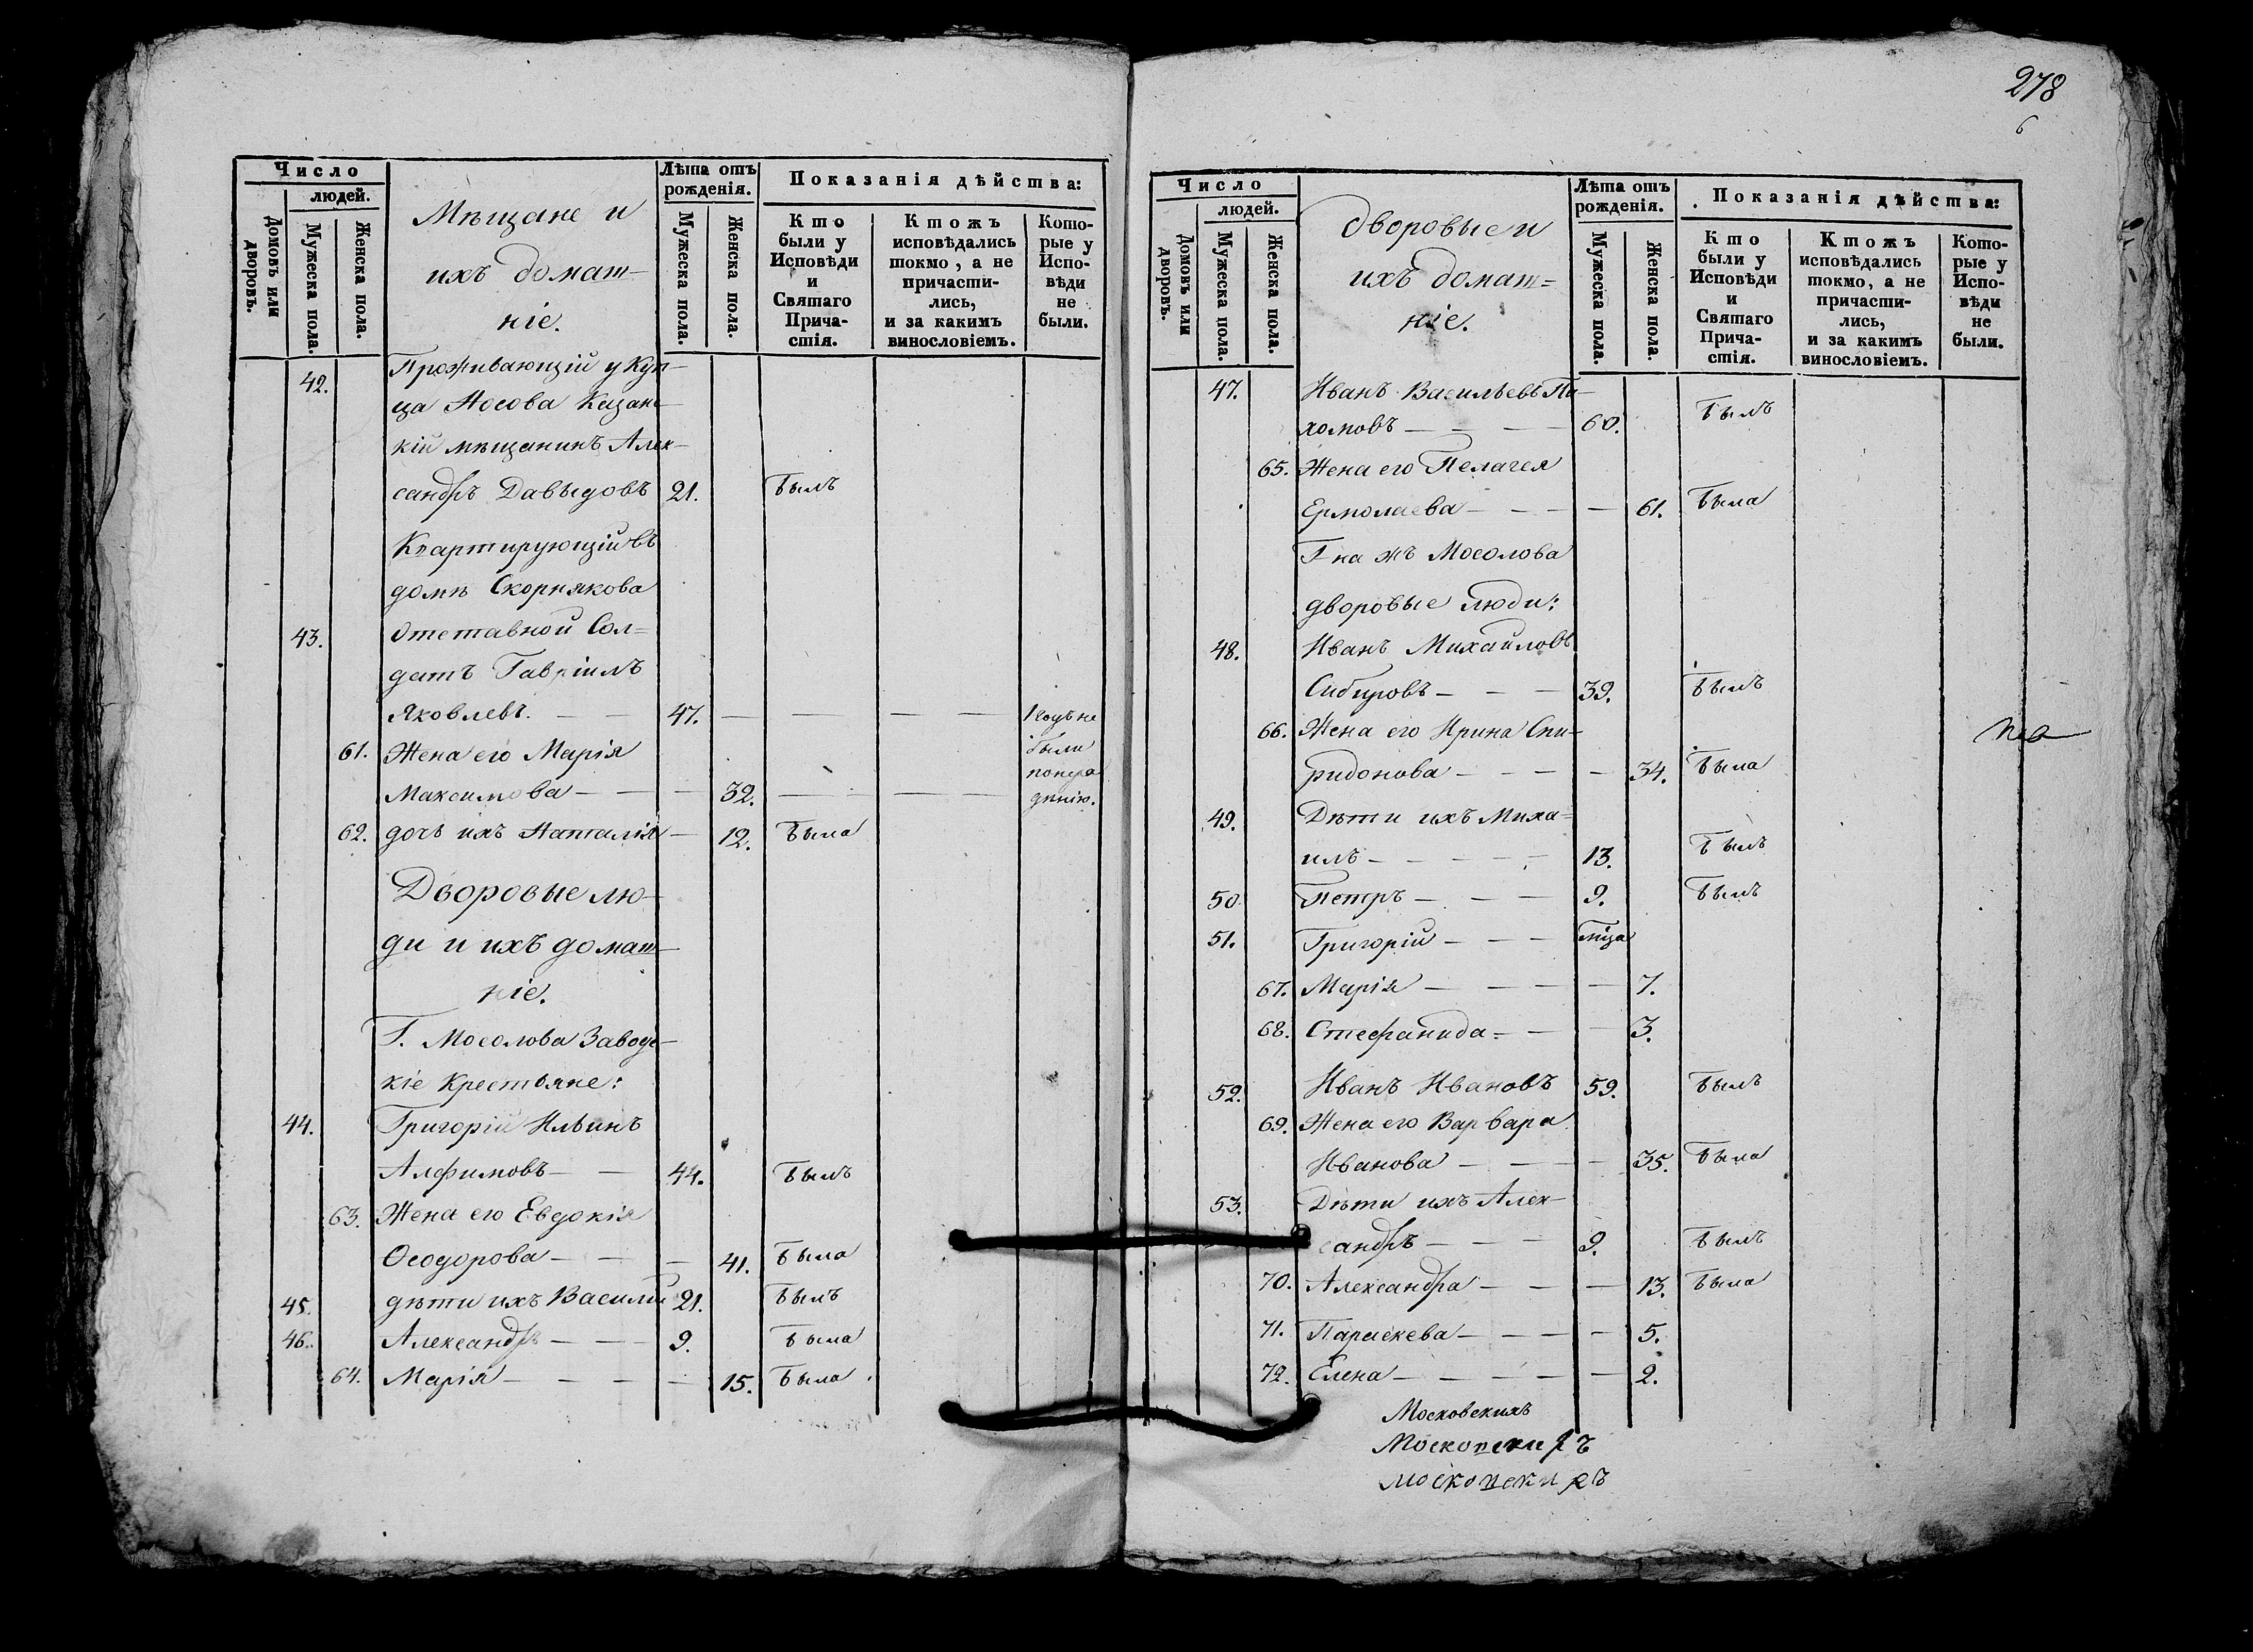 278
6
Число
людей.
Домовъ или дворовъ.
Мужеска пола.
Женска пола.
Мѣщане и
ихъ домаш-
ніе.
Лѣта отъ рожденія.
Мужеска пола.
Женска пола.
Показанія дѣйства:
Кто были у Исповѣди и Святаго Прича- стія.
Ктожъ исповѣдались токмо, а не причасти- лись, и за какимъ винословіемъ.
Кото- рые у Испо- вѣди не были.
42. Проживающій у Куп-
ца Носова Казанс-
кій мѣщанинъ Алек-
сандръ Давыдовъ 21. былъ
Квартирующій въ
домѣ Скорнякова
43. Отставной Сол=
датъ Гавріилъ
Яковлевъ. — — 47. — — — — 1 годъ не
61. Жена его Марія были
Максимова — — — 32. — — — — понера
дѣнію.
62. дочь ихъ Наталія — 12. была
Дворовые лю-
ди и ихъ домаш-
ніе.
Г. Мосолова Заводс-
кіе Крестьяне:
44. Григорій Ильинъ
Алфимовъ — — 44. былъ
63. Жена его Евдокія
Ѳеодорова — — — 41. была
45. дѣти ихъ Василій 21. былъ
46. Александръ — — 9. была
64. Марія — — — — — 15. была
Число
людей.
Домовъ или дворовъ.
Мужеска пола.
Женска пола.
Дворовые и
ихъ домаш=
ніе.
Лѣта отъ рожденія.
Мужеска пола.
Женска пола.
Показанія дѣйства:
Кто были у Исповѣди и Святаго Прича- стія.
Ктожъ исповѣдались токмо, а не причасти- лись, и за какимъ винословіемъ.
Кото- рые у Испо- вѣди не были.
47. Иванъ Васильевъ Па-
хомовъ — — — — 60. былъ
65. Жена его Пелагея
Ермолаева — — — — 61. была
Г-на жъ Мосолова
дворовые люди:
48. Иванъ Михайловъ
Сибировъ — — — 39. былъ
66. Жена его Ирина Спи-
ридонова — — — — 34. была
49. Дѣти ихъ Миха=
илъ — — — — — 13. былъ
50. Петръ — — — 9. былъ
51. Григорій — — —
67. Марія — — — — — 7.
68. Стефанида — — — 3.
52. Иванъ Ивановъ 59. былъ
69. Жена его Варвара
Иванова — — — — 35. была
53. Дѣти ихъ Алек-
сандръ — — — 9. былъ
70. Александра — — — 13. была
71. Параскева — — — — 5.
72. Елена — — — — — 2.
Московскихъ